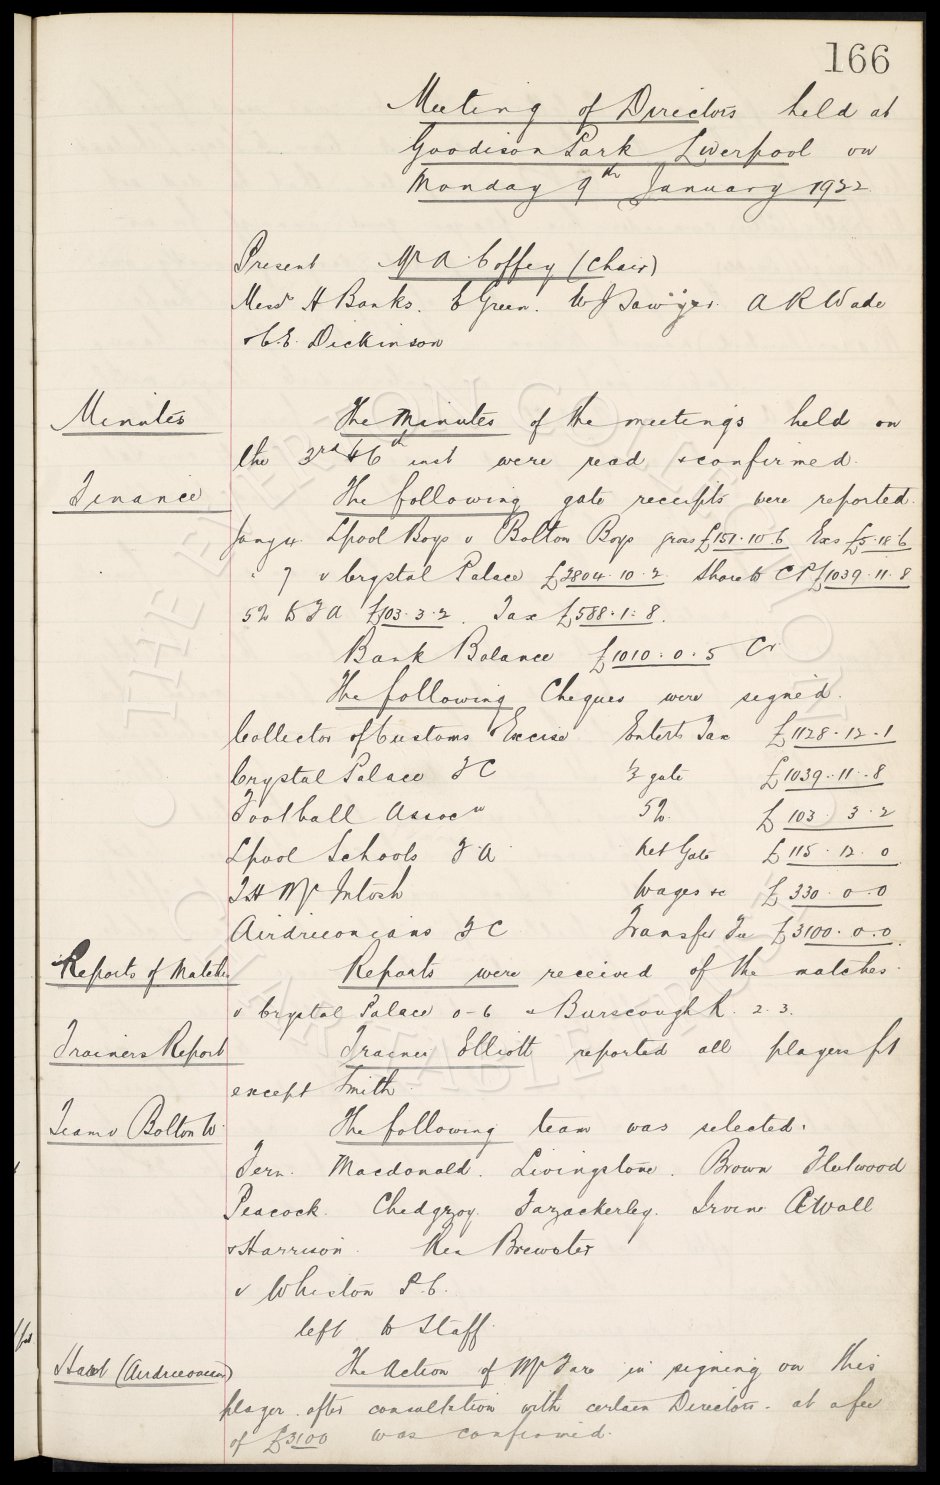 166
Meeting of Directors held at
Goodison Park Liverpool on
Monday 9th January 1922
Present Mr A Coffey (Chair)
Messrs H Banks. E Green. W J Sawyer. A R Wade
& C.E. Dickinson
Minutes The Minutes of the meetings held on
the 3rd & 6th inst were read & confirmed.
Finance The following gate receipts were reported.
Jany 4. Lpool Boys v Bolton Boys gross £151.10.6 Exs £5.18.6
" 7 v Crystal Palace £2804.10.2 Share to CP £1039.11.8
5% to F A £103.3.2. Tax £588.1.8.
Bank Balance £1010.0.5 Cr
The following Cheques were signed.
Collector of Customs & Excise Entert Tax £1128.12.1
Crystal Palace F C ½ gate £1039.11.8
Football Assocn 5% £103.3.2
Lpool Schools F.A. Net Gate £115.12.0
T H McIntosh Wages &c £330.0.0
Airdrieonians F C Transfer Fee £3100.0.0.
Reports of Matches Reports were received of the matches
v Crystal Palace 0-6 & Burscough R. 2.3.
Trainers Report Trainer Elliott reported all players fit
except Smith.
Team v Bolton W. The following team was selected.
Fern. Macdonald. Livingstone. Brown Fleetwood
Peacock. Chedgzoy. Fazackerley. Irvine Atwall
& Harrison. Res Brewster
v Whiston P.C.
left to Staff.
Hart (Airdrieonian) The action of Mr Fare in signing on this
player after consultation with certain Directors. at a fee
of £3100 was confirmed.
THE EVERTON COLLECTION CHARITABLE TRUST